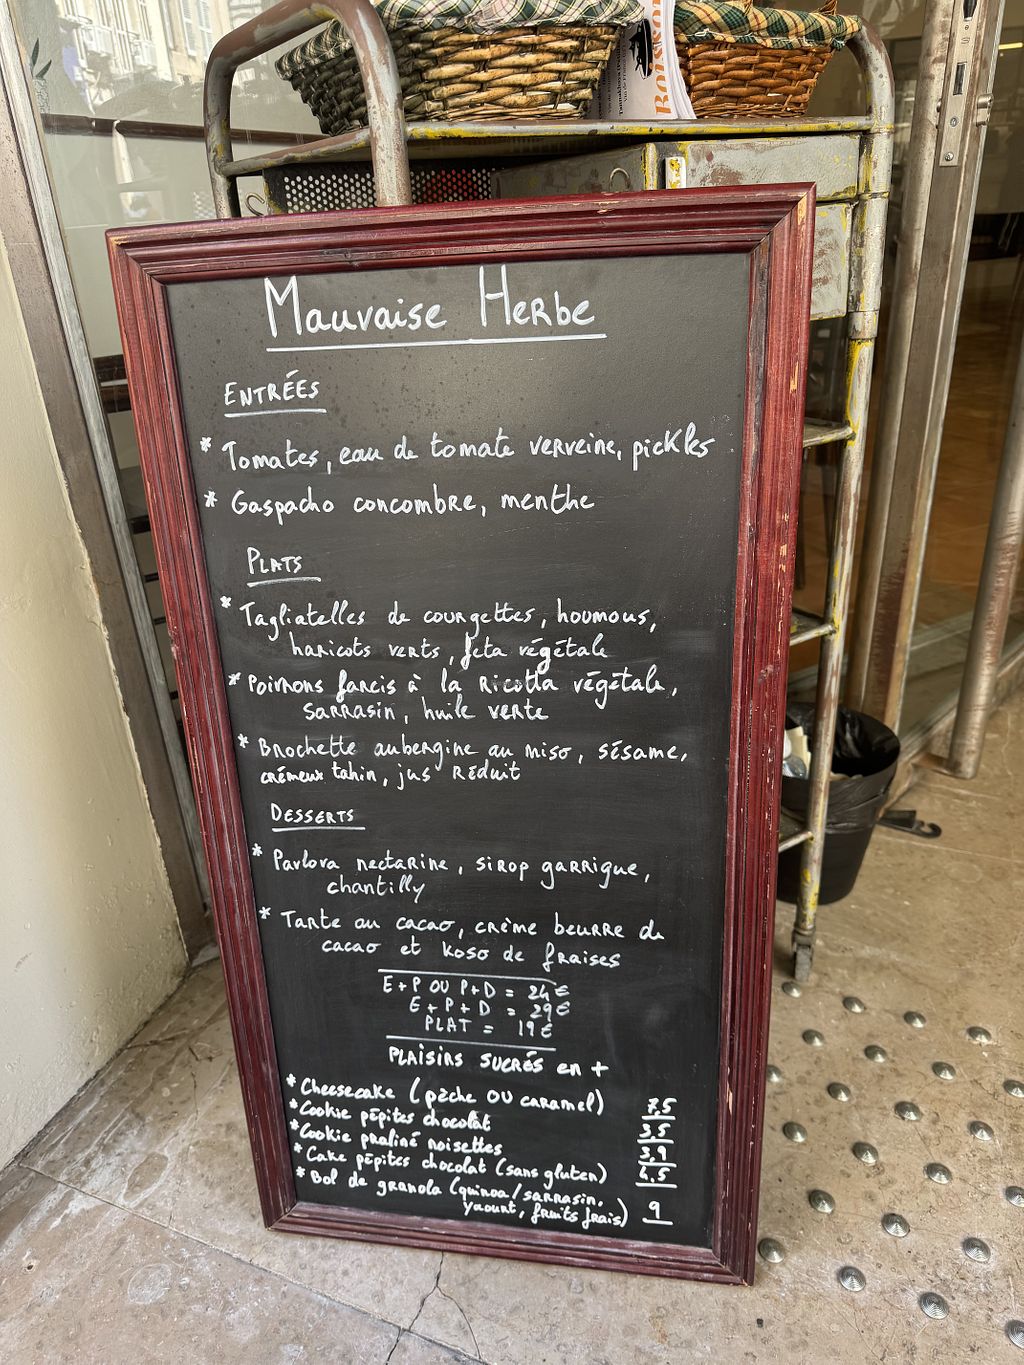 BOISSON
Mauvaise Herbe
ENTRÉES
* Tomates, eau de tomate verveine, pickles
* Gaspacho concombre, menthe
PLATS
* Tagliatelles de courgettes, houmous,
haricots verts, feta végétale
* Poivrons farcis à la ricotta végétale,
sarrasin, huile verte
* Brochette aubergine au miso, sésame,
crémeux tahin, jus réduit
DESSERTS
* Pavlova nectarine, sirop garrigue,
chantilly
* Tarte au cacao, crème beurre de
cacao et koso de fraises
E+P OU P+D = 24€
E+P+D = 29€
PLAT = 19€
PLAISIRS SUCRÉS en +
* Cheesecake (pêche OU caramel) 7,5
* Cookie pépites chocolat 3,5
* Cookie praliné noisettes 3,9
* Cake pépites chocolat (sans gluten) 4,5
* Bol de granola (quinoa/sarrasin,
yaourt, fruits frais) 9